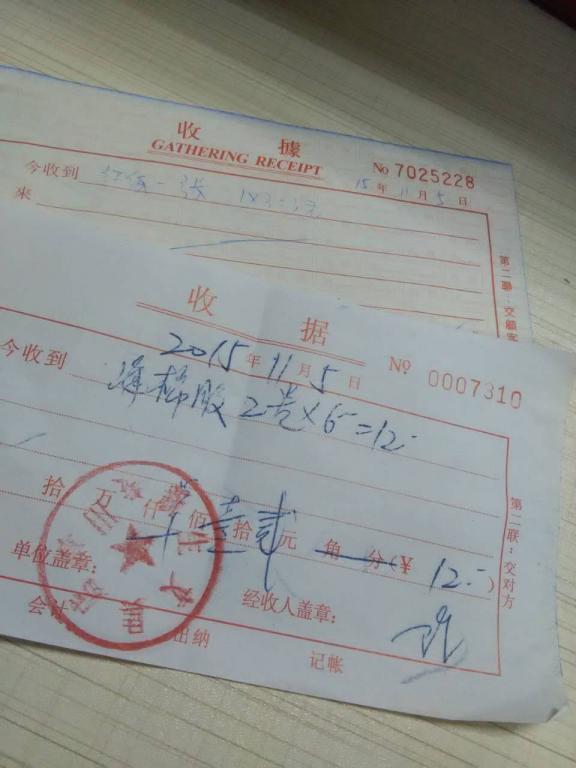 收 據
GATHERING RECEIPT
No 7025228
今收到 一张
15年11月5日
来
第二聯:交顧客
收 据
2015年11月5日
No 0007310
今收到 海棉胶 2卷×6=12.
拾 万 仟 佰壹拾贰元 角 分(¥ 12.)
单位盖章: 经收人盖章:
会计 出纳 记帐
第二联:交对方